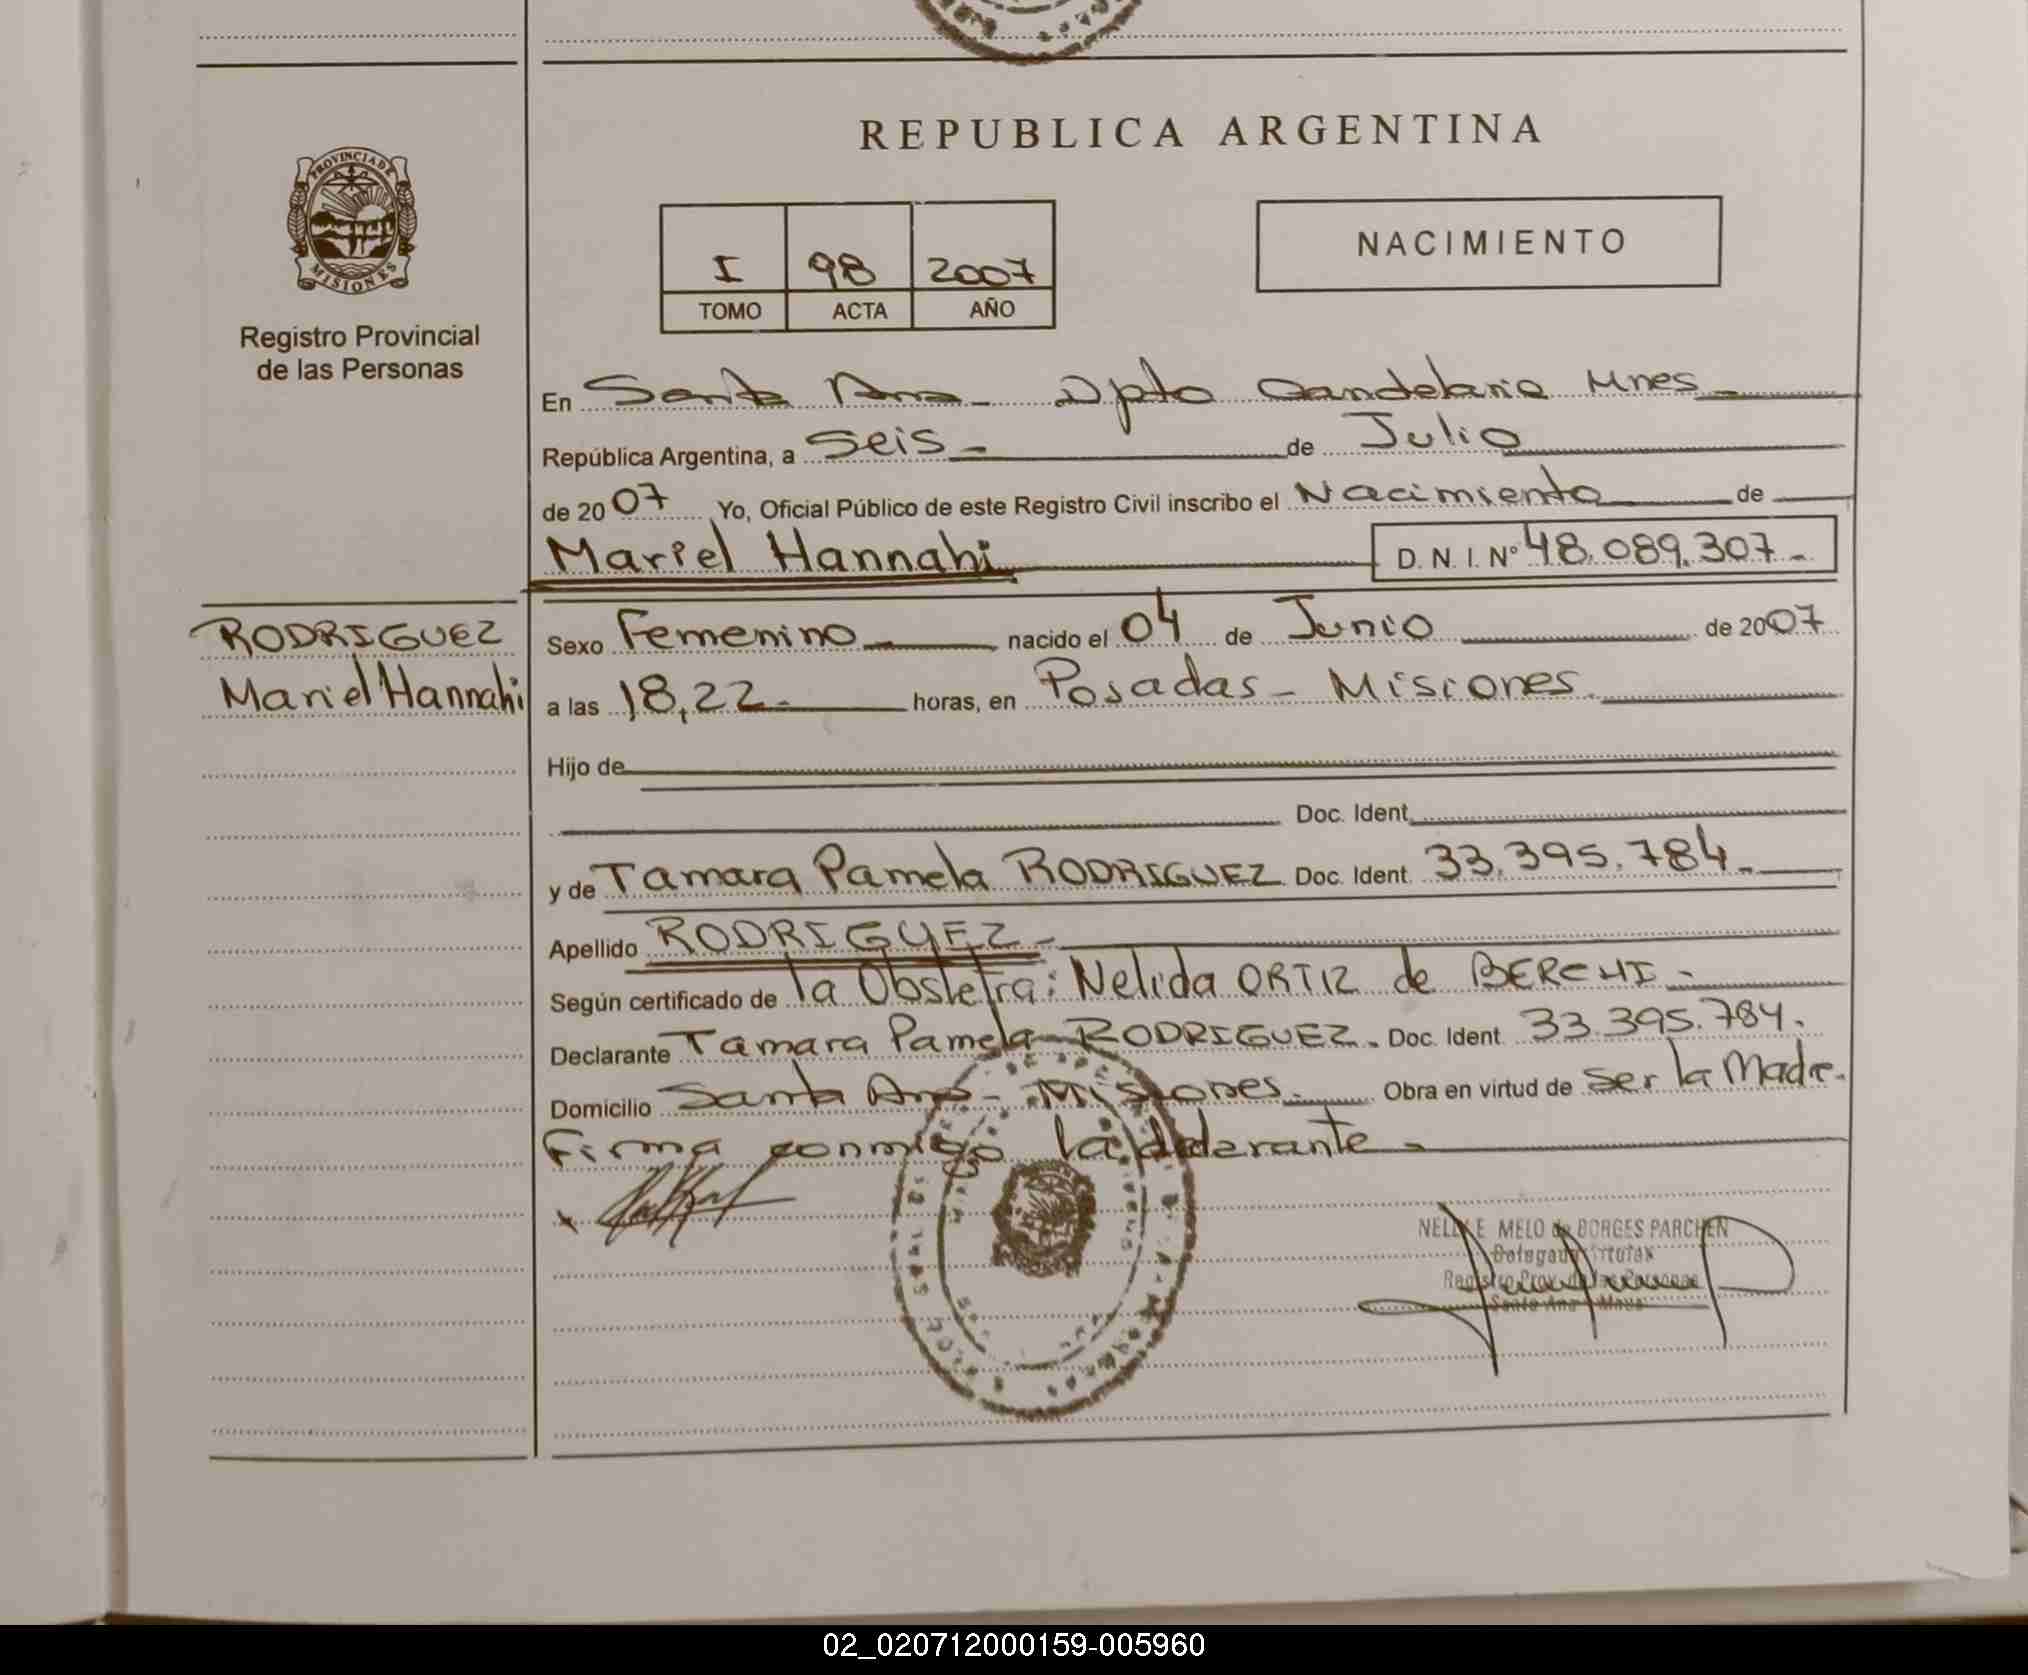 REPUBLICA ARGENTINA
PROVINCIA DE
MISIONES
Registro Provincial
de las Personas
I 98 2007
TOMO ACTA AÑO
NACIMIENTO
En Santa Ana - Dpto Candelaria Mnes
República Argentina, a Seis de Julio
de 2007 Yo, Oficial Público de este Registro Civil inscribo el Nacimiento de
Mariel Hannahi D. N. I. Nº 48.089.307
RODRIGUEZ
Mariel Hannahi
Sexo Femenino nacido el 04 de Junio de 2007
a las 18,22 horas, en Posadas - Misiones
Hijo de
Doc. Ident.
y de Tamara Pamela RODRIGUEZ Doc. Ident. 33.395.784
Apellido RODRIGUEZ
Según certificado de la Obstetra: Nelida ORTIZ de BERCHI
Declarante Tamara Pamela RODRIGUEZ. Doc. Ident. 33.395.784.
Domicilio Santa Ana - Misiones Obra en virtud de ser la Madre.
Firma conmigo la declarante
NELLY E. MELO de BORGES PARCHEN
Delegada Titular
Registro Prov. de las Personas
Santa Ana - Mnes
02_020712000159-005960